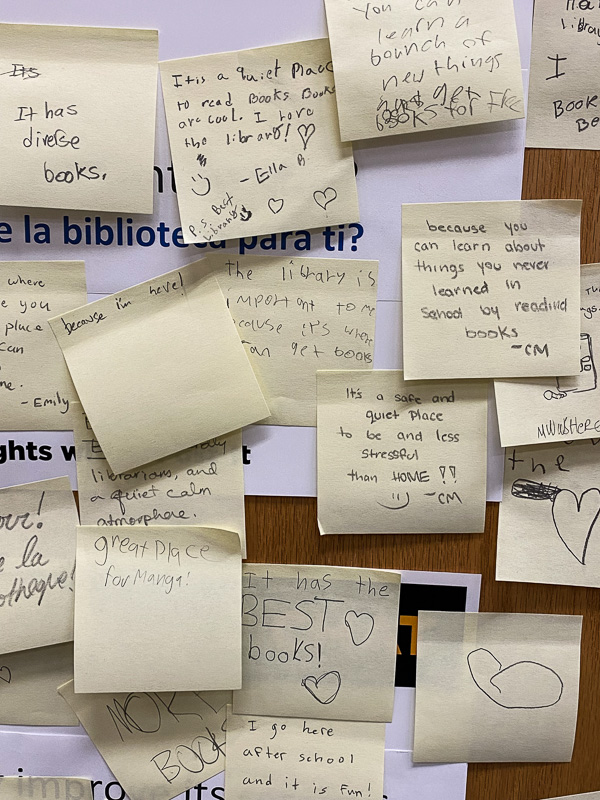 Its
It has
diverse
books.
It is a quiet Place
to read Books Books
are cool. I love
the library!
- Ella B.
P.S. Best
library
You can
learn a
bounch of
new things
and get
books for
I
Book
Be
e la biblioteca para ti?
where
e you
place
can
me.
- Emily
because i'm here!
The library is
important to me
cause it's where
an get books
because you
can learn about
things you never
learned in
School by reading
books
- CM
It's a safe and
quiet Place
to be and less
stressful
than HOME !!
- CM
MWWSHERE
the
ghts w
t
librarians, and
a quiet calm
atmosphere.
great Place
for Manga!
It has the
BEST
books!
MORE
BOOK
I go here
after school
and it is Fun!
improve its